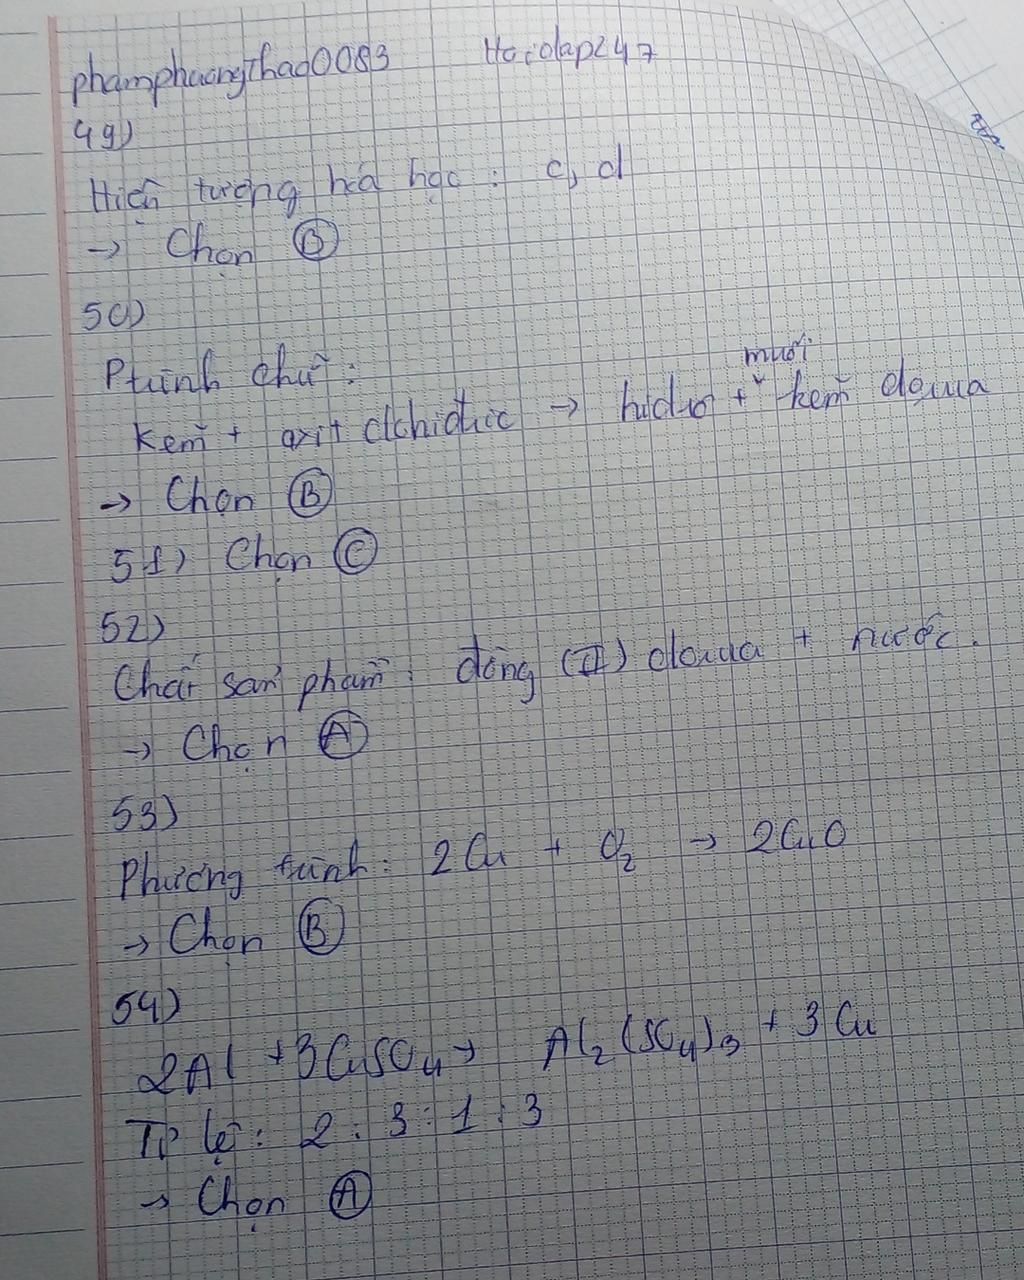 phamphuongthao0083 Hoctap247
49)
Hiện tượng hoá học : c, d
→ Chọn B
50)
Ptrình chữ:
muối
Kẽm + axit clohiđric → hiđro + kẽm clorua
→ Chọn B
51) Chọn C
52)
Chất sản phẩm : đồng (II) clorua + nước.
→ Chọn A
53)
Phương trình: 2Cu + O₂ → 2CuO
→ Chọn B
54)
2Al + 3CuSO₄ → Al₂(SO₄)₃ + 3Cu
Tỉ lệ : 2 : 3 : 1 : 3
→ Chọn A